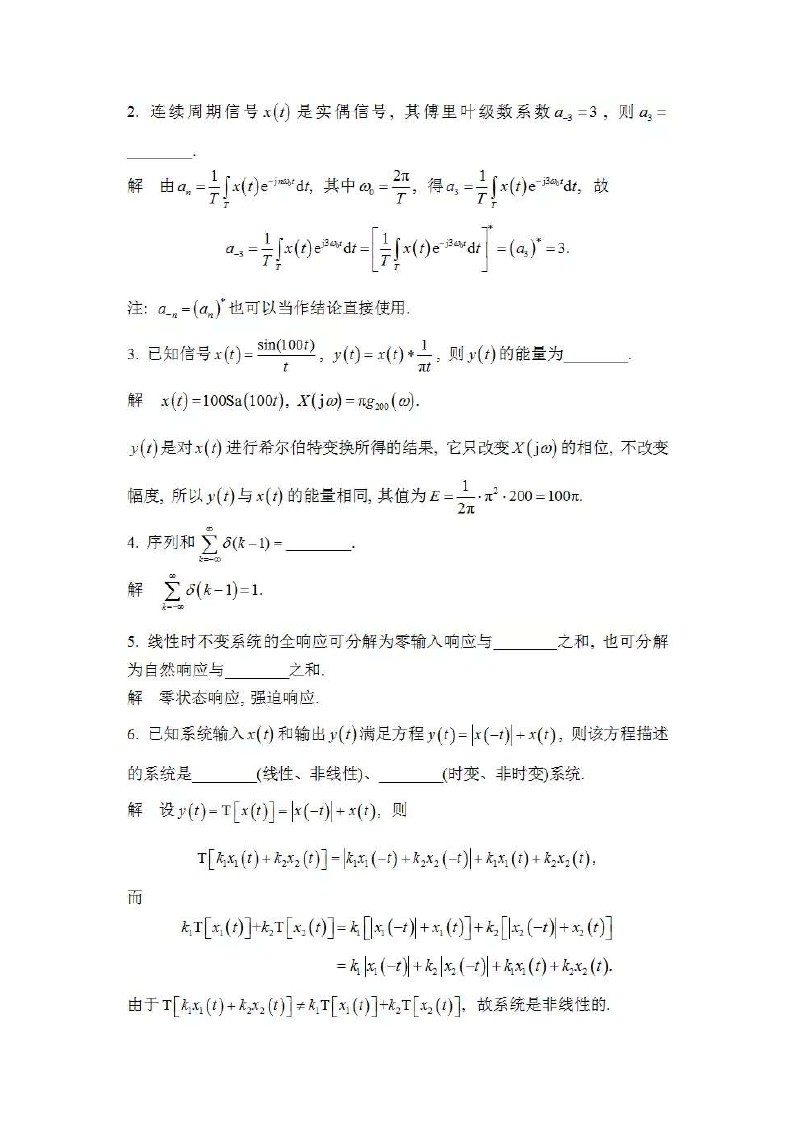 2. 连续周期信号 x(t) 是实偶信号, 其傅里叶级数系数 a₋₃ = 3 , 则 a₃ =
________.
解 由 aₙ = 1/T ∫_T x(t)e^{-jnω₀t}dt, 其中 ω₀ = 2π/T, 得 a₃ = 1/T ∫_T x(t)e^{-j3ω₀t}dt, 故
a₋₃ = 1/T ∫_T x(t)e^{j3ω₀t}dt = [1/T ∫_T x(t)e^{-j3ω₀t}dt]^* = (a₃)^* = 3.
注: a₋ₙ = (aₙ)^* 也可以当作结论直接使用.
3. 已知信号 x(t) = sin(100t)/t , y(t) = x(t) * 1/πt , 则 y(t) 的能量为________.
解 x(t) =100Sa(100t), X(jω) = πg₂₀₀(ω).
y(t) 是对 x(t) 进行希尔伯特变换所得的结果, 它只改变 X(jω) 的相位, 不改变
幅度, 所以 y(t) 与 x(t) 的能量相同, 其值为 E = 1/2π · π² · 200 = 100π.
4. 序列和 ∑_{k=-∞}^{∞} δ(k−1) = ________.
解 ∑_{k=-∞}^{∞} δ(k−1) = 1.
5. 线性时不变系统的全响应可分解为零输入响应与________之和, 也可分解
为自然响应与________之和.
解 零状态响应, 强迫响应.
6. 已知系统输入 x(t) 和输出 y(t) 满足方程 y(t) = |x(−t)| + x(t), 则该方程描述
的系统是________(线性、非线性)、________(时变、非时变)系统.
解 设 y(t) = T[x(t)] = |x(−t)| + x(t), 则
T[k₁x₁(t) + k₂x₂(t)] = |k₁x₁(−t) + k₂x₂(−t)| + k₁x₁(t) + k₂x₂(t),
而
k₁T[x₁(t)]+k₂T[x₂(t)] = k₁[|x₁(−t)| + x₁(t)] + k₂[|x₂(−t)| + x₂(t)]
= k₁|x₁(−t)| + k₂|x₂(−t)| + k₁x₁(t) + k₂x₂(t).
由于 T[k₁x₁(t) + k₂x₂(t)] ≠ k₁T[x₁(t)]+k₂T[x₂(t)], 故系统是非线性的.